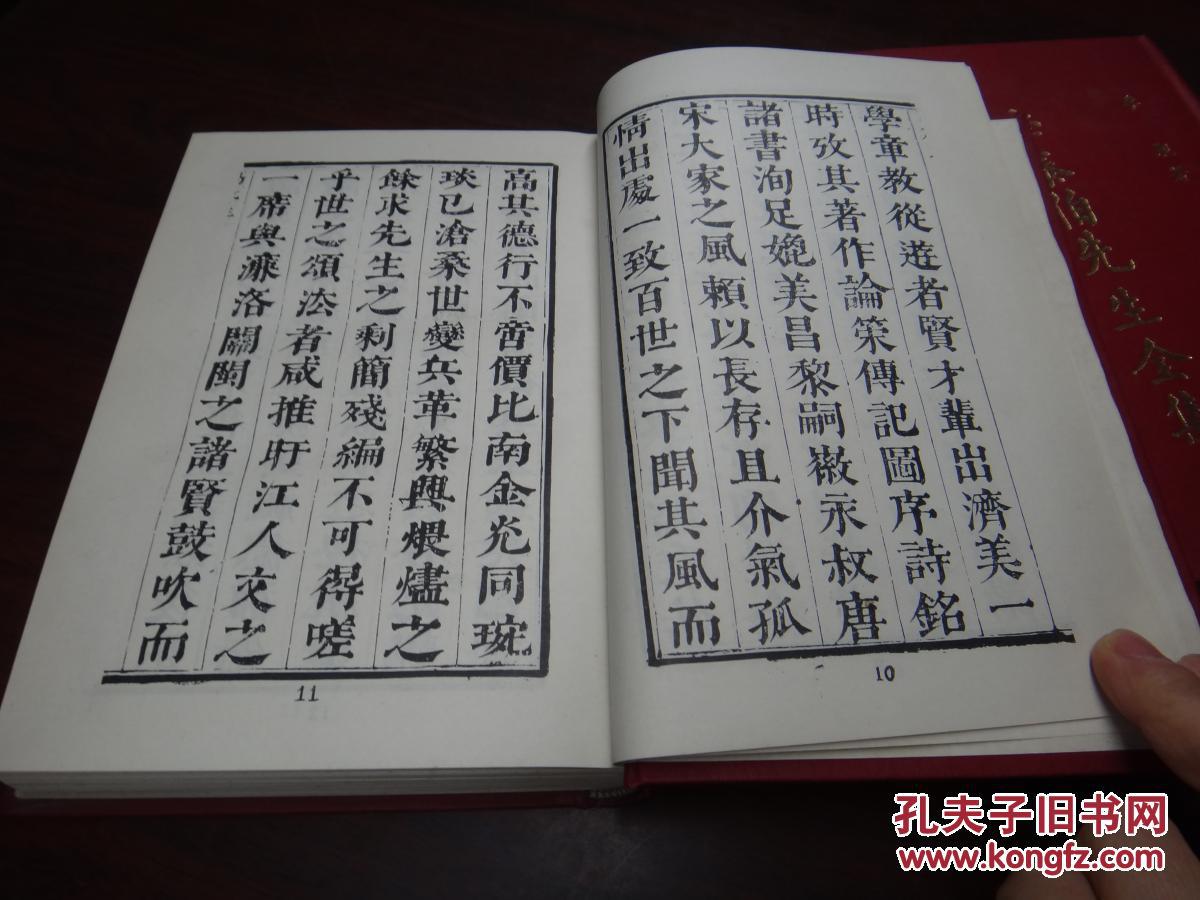 學童教從遊者賢才輩出濟美一
時攷其著作論策傳記圖序詩銘
諸書洵足媲美昌黎嗣徽永叔唐
宋大家之風賴以長存且介氣孤
情出處一致百世之下聞其風而
10
高其德行不啻價比南金光同琬
琰已滄桑世變兵革繁興煨燼之
餘求先生之剩簡殘編不可得嗟
乎世之頌法者咸推盱江人文之
一席與濂洛關閩之諸賢鼓吹而
11
伯先生全集
孔夫子旧书网
www.kongfz.com